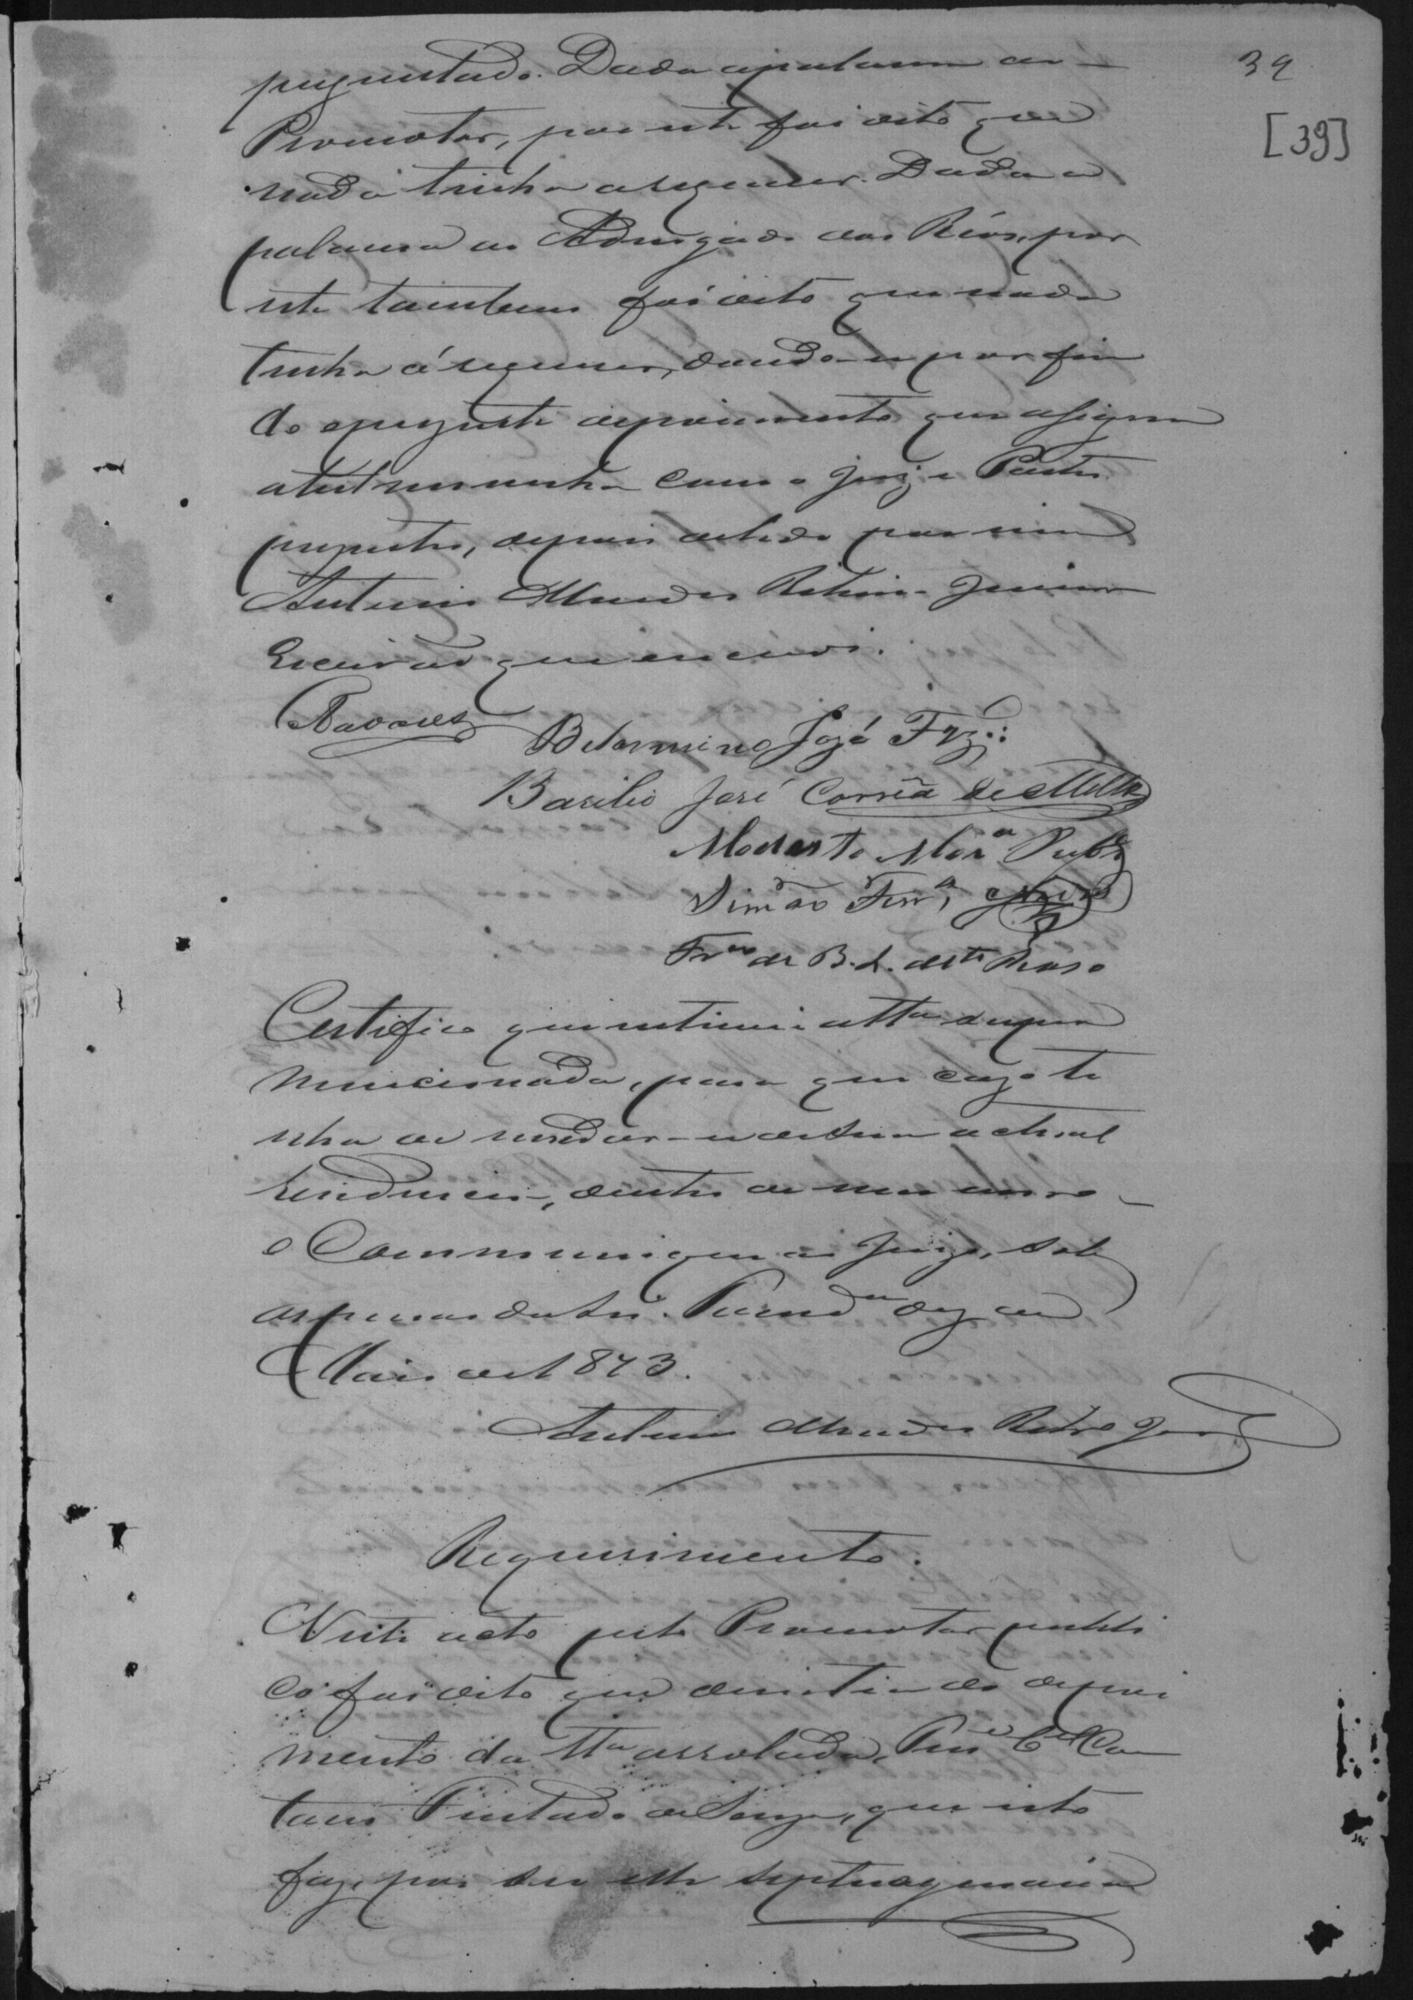 39
[39]
perguntado. Dada a palavra ao
Promotor, por este foi dito que
nada tinha a requerer. Dada a
palavra ao Advogado dos Réos, por
este tambem foi dito que nada
tinha á requerer, dando-se por fin
do o presente depoimento que assigna
a testemunha com o Juiz e Partes
presentes, depois de lido por mim
Antonio Mendes Ribeiro Junior
Escrivão que escrevi.
Tavares
Belarmino José
Basilio José Corrêa de Mello
Modesto
Simão Ferrª
de B. L. deste
Certifico que intimei a ttª supra
mencionada, para que caso te
nha de mudar-se de sua actual
residencia, dentro de um anno
o Communique ao Juizo, sob
as penas da Lei. dez de
Maio de 1873.
Antonio Mendes Ribrº Junr
Requerimento.
Neste acto pelo Promotor publi
co foi dito que desistia do depoi
mento da ttª arrolada, Cel Ca
tano de Souza, que isto
faz, por ser elle septuagenario